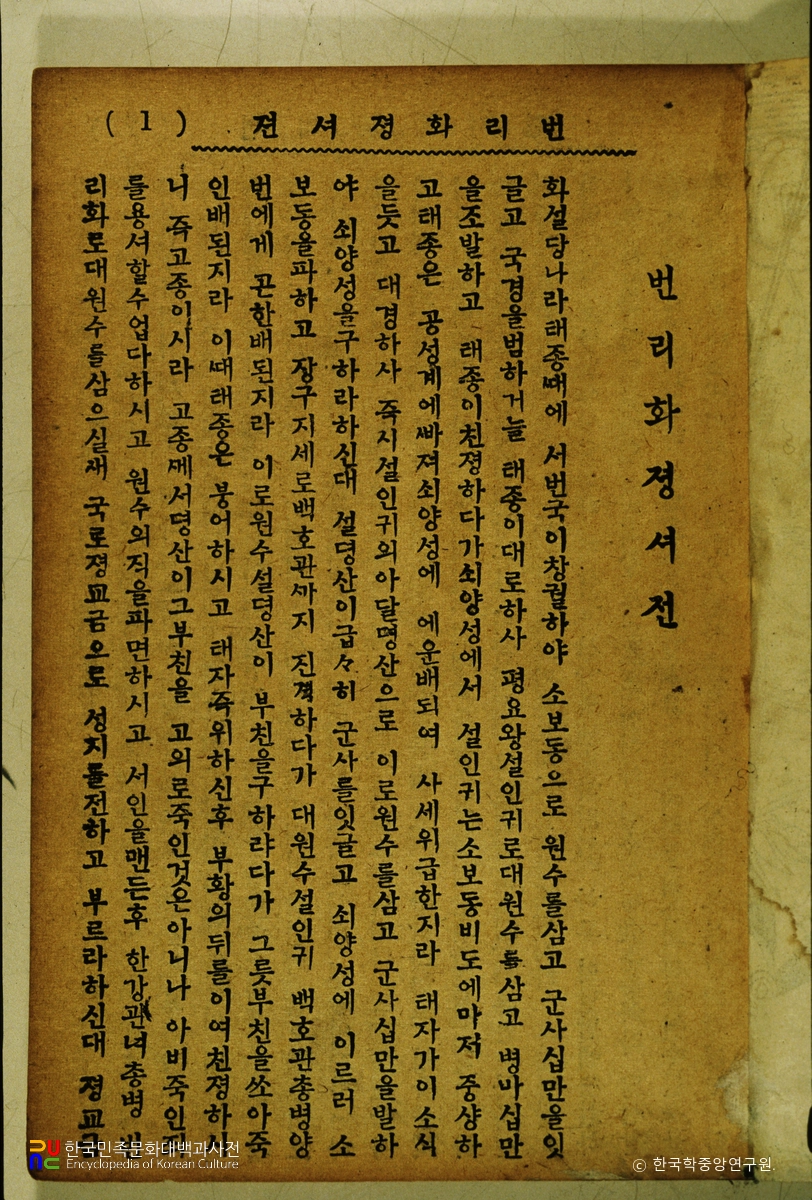 번리화졍셔젼 (1)
번리화졍셔전
화셜당나라태종때에 서번국이창궐하야 소보동으로 원수를삼고 군사십만을잇
글고 국경을범하거늘 태종이대로하사 평요왕셜인귀로대원수를삼고 병마십만
을조발하고 태종이친졍하다가쇠양성에서 셜인귀는소보동비도에마저 중상하
고태종은 공성계에빠져쇠양성에 에운배되여 사세위급한지라 태자가이소식
을듯고 대경하사 즉시셜인귀의아달뎡산으로 이로원수를삼고 군사십만을발하
야 쇠양성을구하라하신대 셜뎡산이급々히 군사를잇글고 쇠양성에 이르러 소
보동을파하고 장구지세로백호관까지 진격하다가 대원수셜인귀 백호관총병양
번에게 곤한배된지라 이로원수셜뎡산이 부친을구하랴다가 그릇부친을쏘아죽
인배된지라 이때태종은 붕어하시고 태자즉위하신후 부황의뒤를이여친졍하시
니 즉고종이시라 고종께서뎡산이그부친을 고의로죽인것은아니나 아비죽인
를용셔할수업다하시고 원수의직을파면하시고 서인을맨든후 한강관녀총병
리화로대원수를삼으실새 국로졍교금으로 성지를전하고 부르라하신대 졍교
한국민족문화대백과사전
Encyclopedia of Korean Culture
© 한국학중앙연구원.